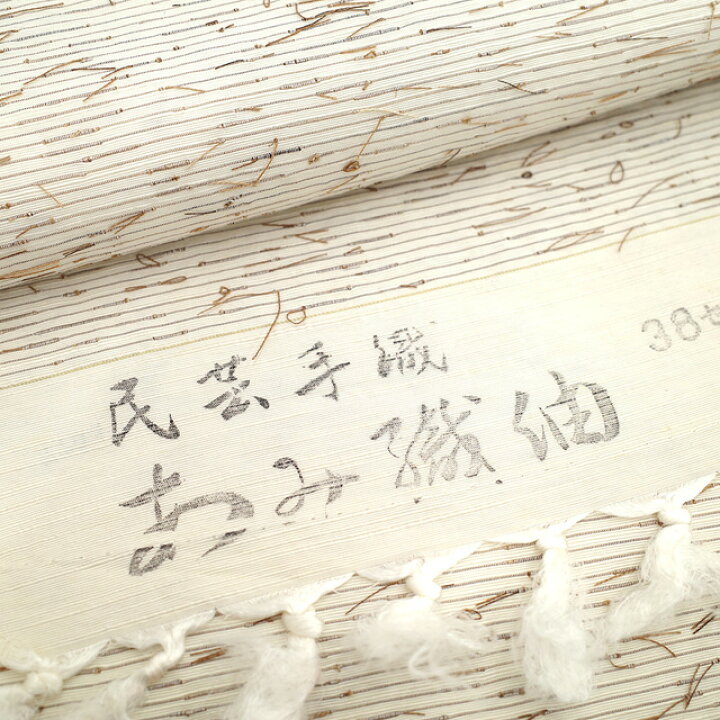 民芸手織
あみ織紬
38